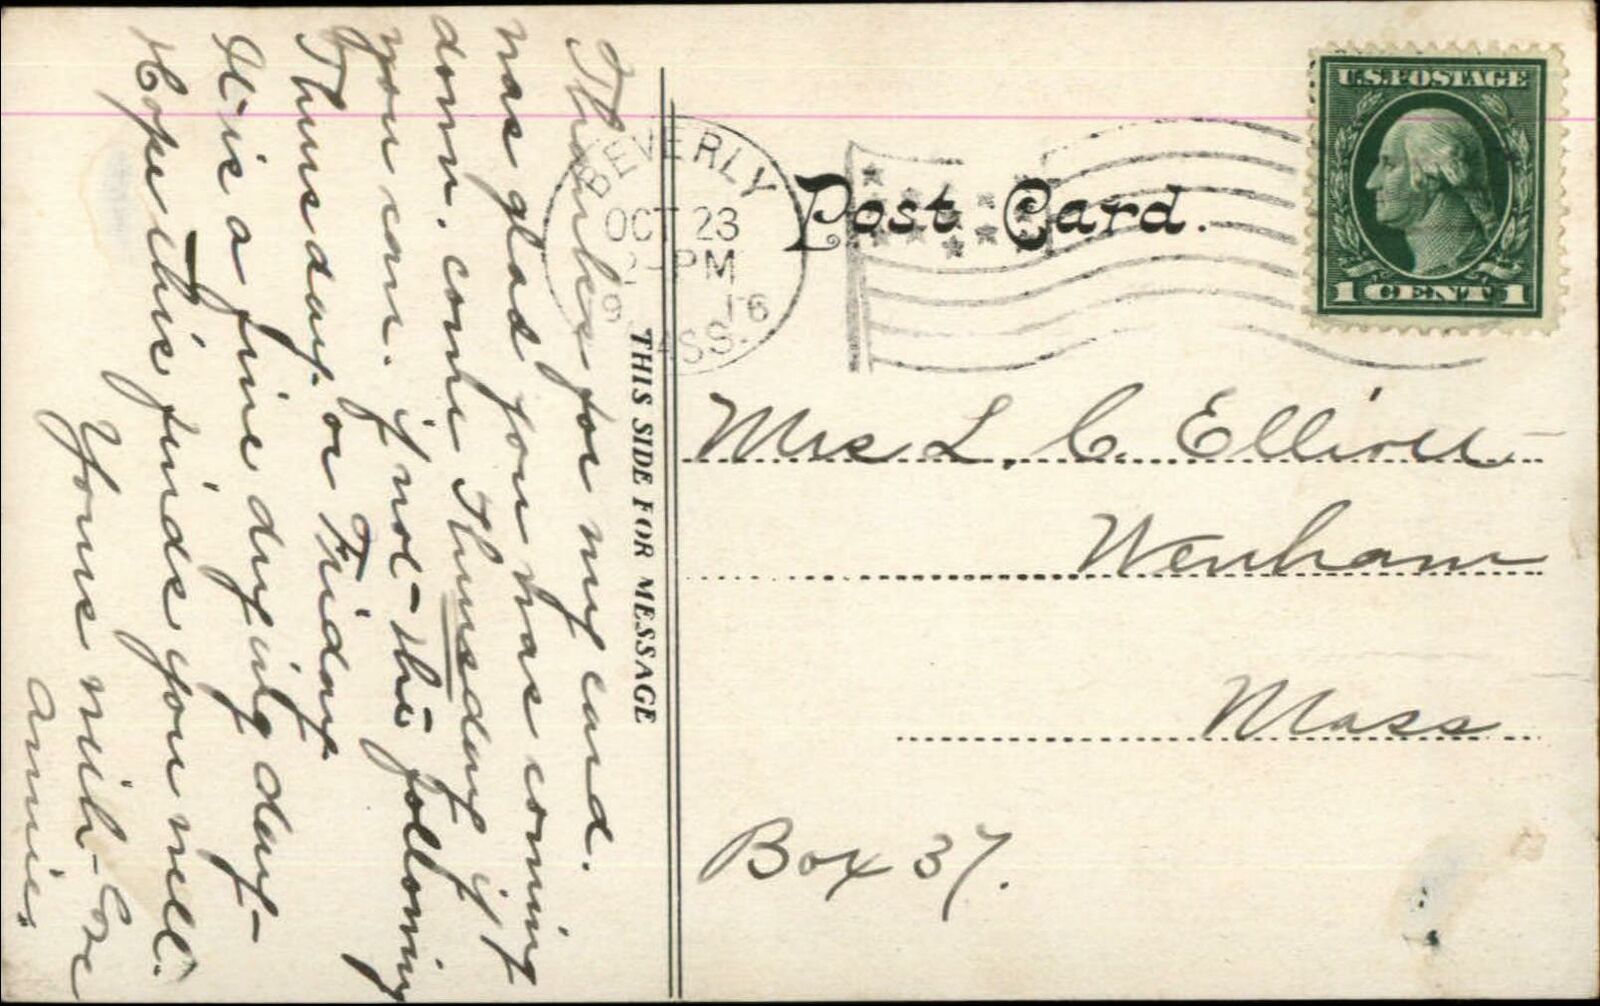 Thanks for my card.
was glad you was coming
down. come Thursday if
you can. if not the following
Thursday. or Friday
It is a fine drying day
Hope this finds you well.
Yours with Love
Annie.
THIS SIDE FOR MESSAGE
BEVERLY
OCT 23
PM
16
MASS.
Post Card.
U.S. POSTAGE
1 CENT 1
Mrs L. C. Elliott
Wenham
Mass
Box 37.